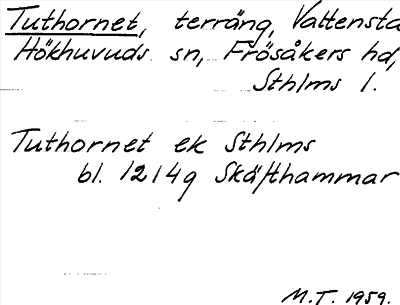 Tuthornet, terräng, Vattensta
Hökhuvuds sn, Frösåkers hd,
Sthlms l.
Tuthornet ek Sthlms
bl. 12 I 4g Skäfthammar
M.T. 1959.